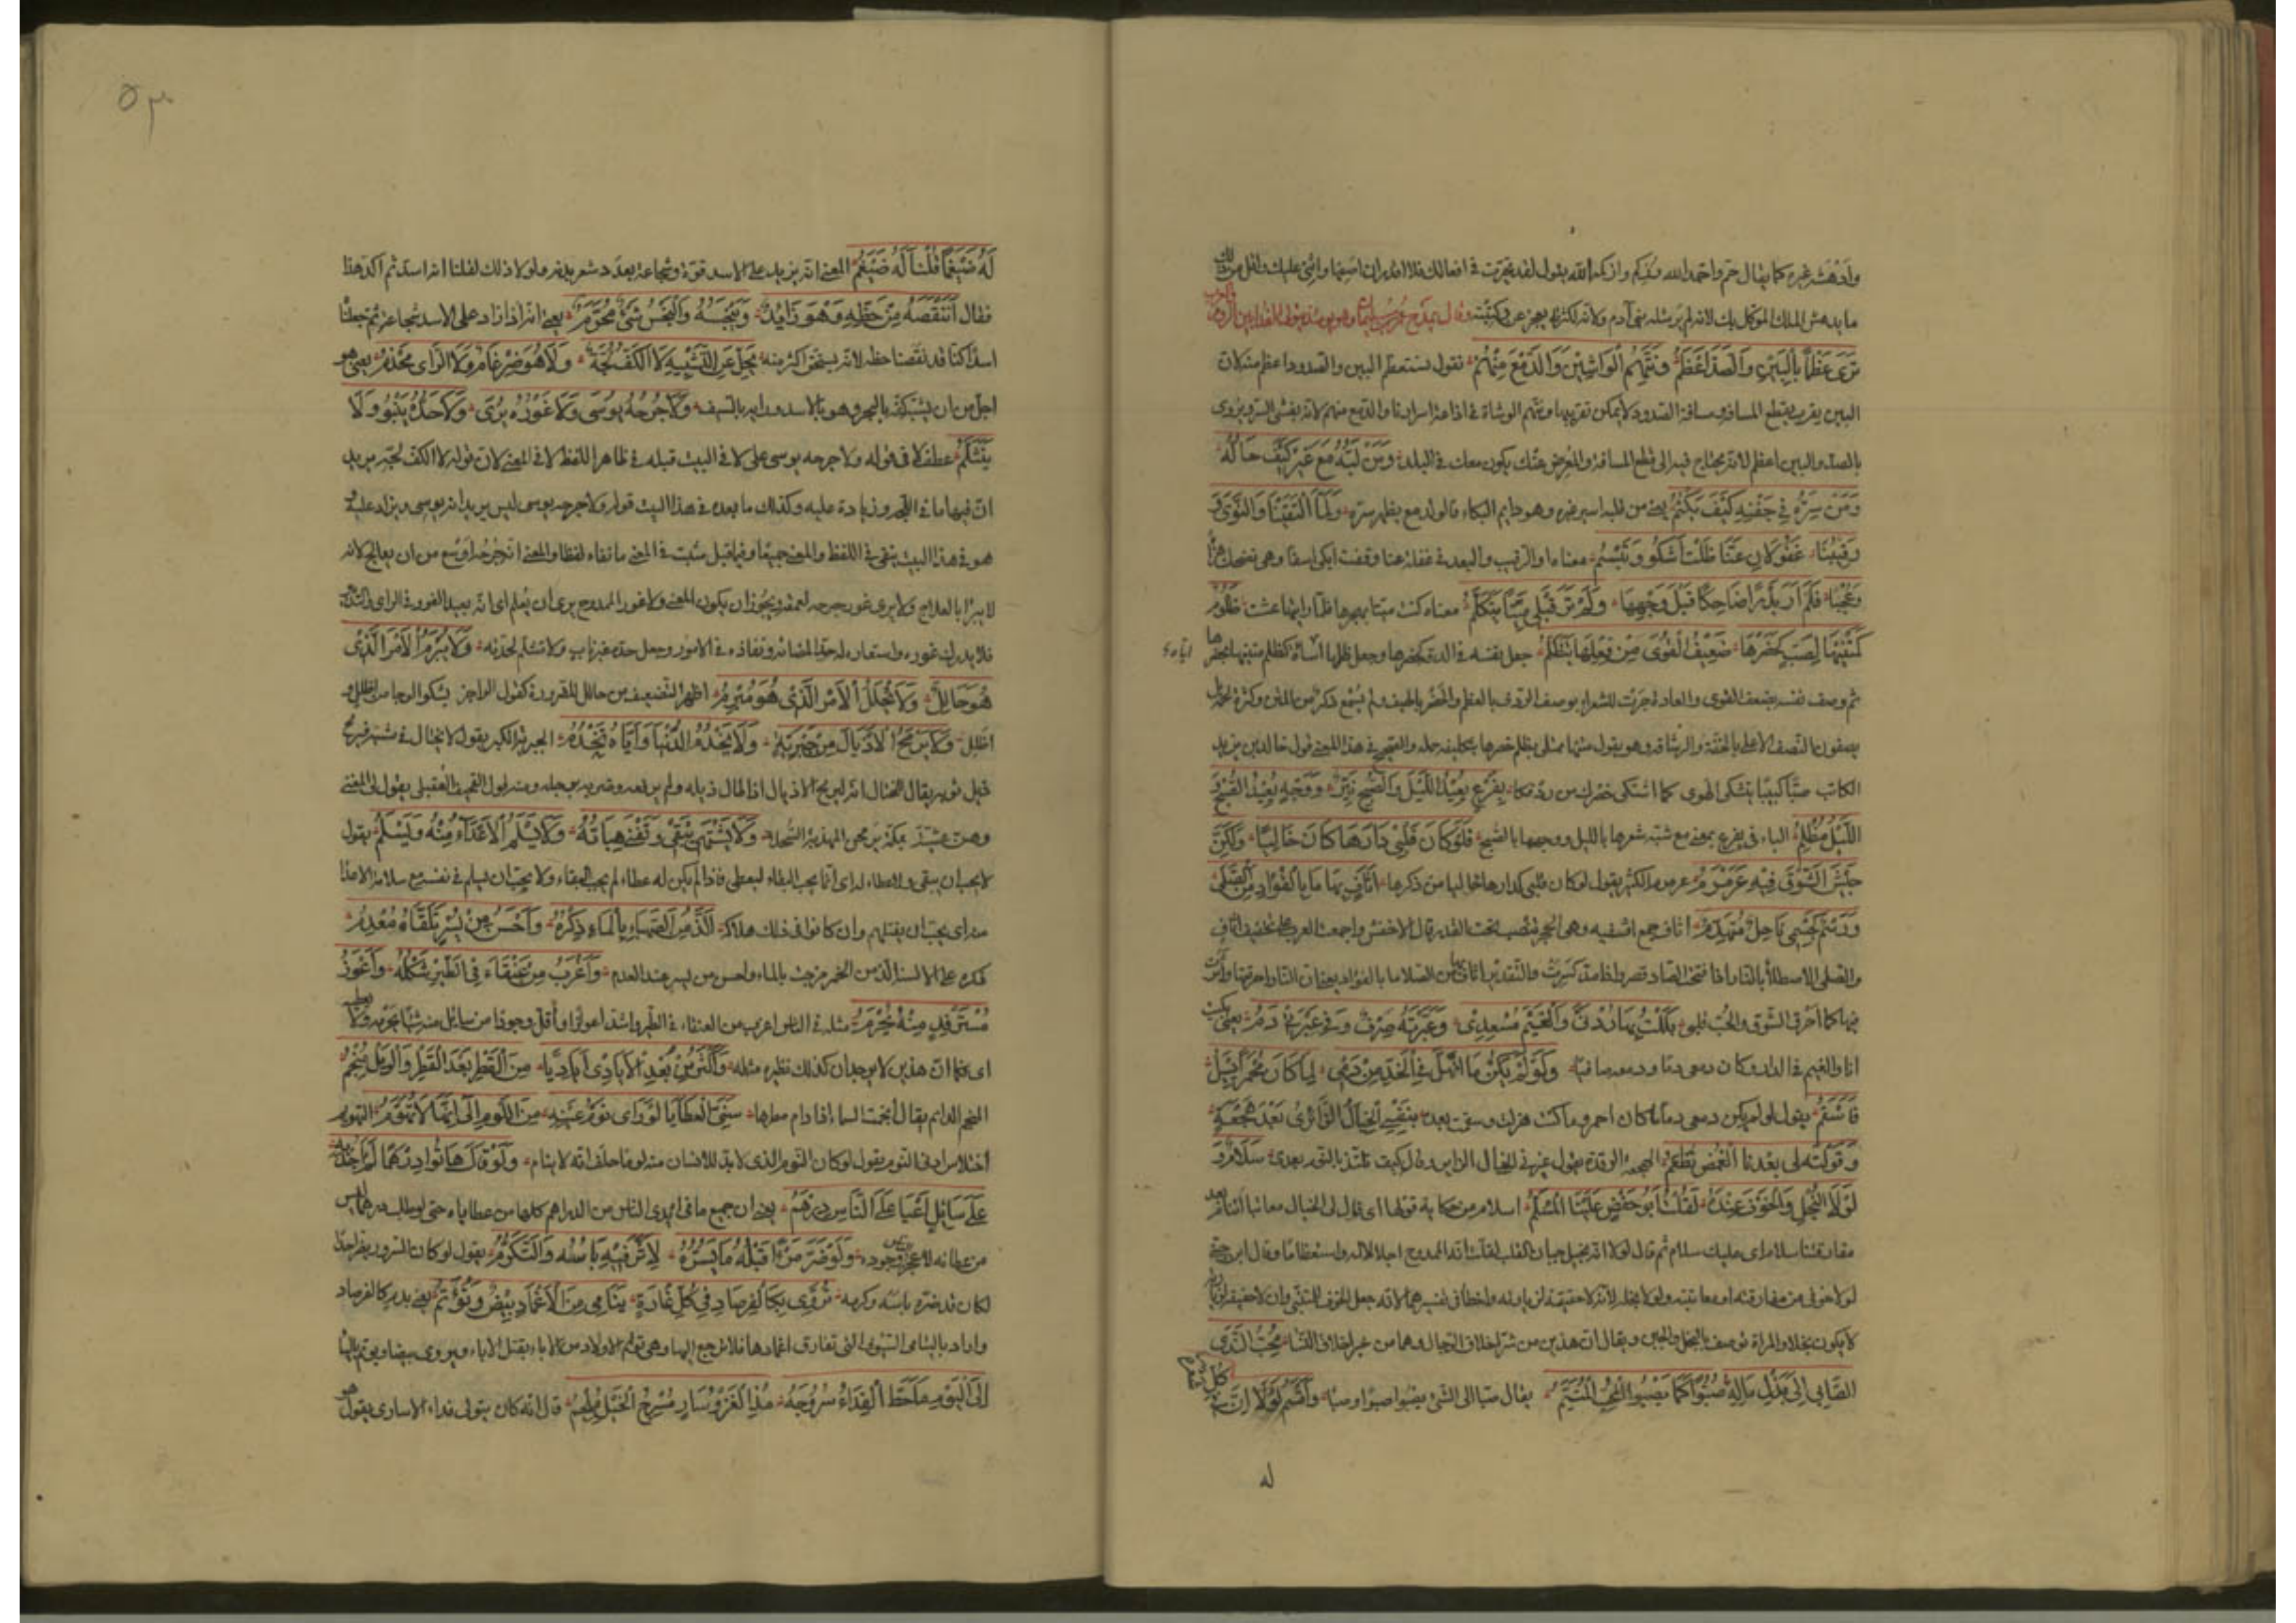 وادهشه غيره كما يقال حم واحمه الله وزكم وازكمه الله يقول لقد تحيرت في افعالك فلا اقدر ان اصفها واثني عليك واقل من ذلك
ما يدهش الملك الموكل بك لانه لم ير مثله بني آدم ولانه لكثرتها يعجز عن كتبته وقال يمدح عمر بن سليمان وهو يومئذ يتولى الفداء بين الروم والعرب
نرى عظما بالبين والصد اعظم ونتهم الواشين والدمع منهم يقول نستعظم البين والصدود اعظم منه لان
البين يقرب بقطع المسافة ومسافة الصدود لا يمكن تقريبها ونتهم الوشاة في اذاعة اسرارنا والدمع منهم لانه يفشى السر ويروى
بالصد والبين اعظم لانه يحتاج فيه الى قطع المسافة والمعرض عنك يكون معك في البلد ومن لبه مع غيره كيف حاله
ومن سره في جفنه كيف يكتم يعني من قلبه اسير غيره وهو دايم البكاء قالوا دمع يظهر سره ولما التقينا والنوى و
رقيبنا غفولان عنا ظلت اشكو وتبسم معناه والرقيب والبعد في غفلة عنا وقفت ابكي اسفا وهي تضحك هزأ
وعجبا فلم ار بدرا ضاحكا قبل وجهها ولم تر قبلي ميتا يتكلم معناه كنت ميتا بهجرها فلما رايتها عشت ظلوم
كمتنيها لصب كخصرها ضعيف القوى من فعلها يتظلم جعل نفسه في الدقة كخصرها وجعل ظلمها اياه كظلم متنيها لخصرها
ثم وصف نفسه بضعف القوى والعادة جرت للشعراء بوصف الردف بالعظم والخصر بالهيف ولم يسمع ذكر سمن المتن وكثرة لحمه بل
يصفون النصف الاعلى بالخفة والرشاقة وهو يقول متنها ممتلئ يظلم خصرها بتكليفه حمله والصحيح في هذا المعنى قول خالد بن يزيد
الكاتب صبا كئيبا يتشكى الهوى كما اشتكى خصرك من ردفكا بفرع يعيد الليل والصبح نير ووجه يعيد الصبح و
الليل مظلم الباء في بفرع بمعنى مع شبه شعرها بالليل ووجهها بالصبح فلو كان قلبي دارها كان خاليا ولكن
جيش الشوق فيه عرمرم عرمرم الكثير يقول لو كان قلبي كدارها خاليا من ذكرها اثاف بها ما بالفؤاد من الصلى
ورسم كجسمي ناحل متهدم اثاف جمع اثفيه وهي الحجر تنصب تحت القدر قال الاخفش واجمعت العرب على تخفيف اثاف
والصلى الاصطلاء بالنار اذا فتحت الصاد قصر واذا مد كسرت والتقدير اثاف بها من الصلا ما بالفؤاد يعني ان النار احرقتها واثرت
فيها كما احرق الشوق والحب قلبي بللت بها ردني والغيم مسعدي وعبرته صرف وفي عبرتي دم يعني بكيت
انا والغيم في الدار وكان دمعي دما ودمعه صافيا ولو لم يكن ما انهل في الخد من دمي لما كان محمرا يسيل
فاسقم يقول لو لم يكن دمعي دما لما كان احمر وما كنت هزلت وسقمت بعده بنفسي الخيال الزائري بعد هجعة
وقولته لي بعدنا الغمض تطعم الهجعة الرقدة يقول عني في الخيال الزايري قال كيف تلتذ بالنوم بعدي سلام و
لولا البخل والخوف عنده لقلت ابو حفص علينا المسلم سلام من حكاية قولها اي قال لي الخيال معاتبا انت نائم بعد
مفارقتنا سلام اي عليك سلام ثم قال لولا انه بخيل جبان لقلت انه الممدوح اجلالا له واستعظاما وقال ابن جني
لولا خوفي من مفارقته او معاتبته ولولا بخله لانه لا حقيقة لزيارته واخطأ في تفسيرهما لانه جعل الخوف للمتنبي وان لا حقيقة لزيارته
لا يكون بخلا والمراة توصف بالبخل والجبن ويقال ان هذين من شر اخلاق الرجال وهما من خير اخلاق النساء محب الندى
الصابي الى بذل ماله صبوا كما يصبو المحب المتيم يقال صبا الى الشئ يصبو صبوا وصبا واقسم لولا ان في كل شعرة
له
٥٣
له ضيغما قلنا له ضيغم المعنى انه يزيد على الاسد قوة وشجاعة بعدد شعر بدنه ولولا ذلك لقلنا انه اسد ثم اكد هذا
فقال اننقصه من حظه وهو زايد ونبخسه والبخس شئ محرم يعني انه اذا زاد على الاسد شجاعة ثم جعلنا
اسدا كنا قد نقصنا حظه لانه يستحق اكثر منه يجل عن التشبيه لا الكف لجة ولا هو ضرغام ولا الراى مخذم يعني هو
اجل من ان يشبه كفه بالبحر وهو بالاسد ورايه بالسيف ولا جرحه يوسى ولا غوره يرى ولا حده ينبو ولا
يتثلم عطف لا في قوله ولا جرحه يوسى على لا في البيت قبله في ظاهر اللفظ لا في المعنى لان قوله لا الكف لجة يريد
ان فيها ما في اللجة وزيادة عليه وكذلك ما بعده في هذا البيت قوله ولا جرحه يوسى ليس يريد انه يوسى ويزاد عليه
هو في هذا البيت ينفي في اللفظ والمعنى جميعا وفيما قبل مثبت في المعنى ما نفاه لفظا والمعنى ان جرحه اوسع من ان يعالج لانه
لا يبرا بالعلاج ولا يرى غور جرحه لعمقه ويجوز ان يكون المعنى ولا غور الممدوح يرى اى يعلم اى انه بعيد الغور في الراى
فلا يدرك غوره واستعار له حدا لمضائه ونفاذه في الامور وجعل حده غير ناب ولا متثلم لحدته ولا يبرم الامر الذي
هو حالل ولا يحلل الامر الذي هو مبرم اظهر التضعيف من حالل للضرورة كقول الراجز يشكو الوجا من اظلل و
اظلل ولا يرمح الاذيال من جبرية ولا يخدم الدنيا واياه تخدم الجبرية الكبر يقول لا يختال في مشيه فيرمح
ذيل ثوبه يقال للمختال انه ليرمح الاذيال اذا طال ذيله ولم يرفعه وضربه برجله ومنه قول القحيف العقيلي يقول لي المفتي
وهن عشية بمكة يرمحن المهدبة السحلا ولا يشتهى يبقى وتفنى هباته ولا يسلم الاعداء منه ويسلم يقول
لا يحب ان يبقى ولا عطاء له اى انما يحب البقاء ليعطي فاذا لم يكن له عطاء لم يحب البقاء ولا يحب ان يسلم في نفسه مع سلامة الاعداء
منه اى يحب ان يقتلهم وان كانوا في ذلك هلاكه الذ من الصهباء بالماء ذكره واحسن من يسر تلقاه معدم
ذكره على الالسنة الذ من الخمر مزجت بالماء واحسن من يسر عند العدم واغرب من عنقاء في الطير شكله واعوز
من مسترفد منه يحرم مثله في الناس اغرب من العنقاء في الطير واشد اعوازا واقل وجودا من سائل منه شيئا يحرمه ولا
اى كما ان هذين لا يوجدان كذلك نظيره مثله واكثر من بعد الايادي اياديا من القطر بعد القطر والوبل مثجم
المثجم الدايم يقال اثجمت السماء اذا دام مطرها سني العطايا لو راى نوم عينه من اللؤم الى انها لا تهوم التهويم
اختلاس ادنى النوم يقول لو كان النوم الذي لا بد للانسان منه لوما حلف انه لا ينام ولو قال هاتوا درهما لم اجد به
على سائل اعيا على الناس درهم يعني ان جميع ما في ايدي الناس من الدراهم كلها من عطاياه حتى لو طلب درهما ليس
من عطائه لاعجز وجوده ولو ضر مرءا قبله ما يسره لاثر فيه باسه والتكرم يقول لو كان السرور يضر احدا
لكان قد ضره باسه وكرمه تروى بكالفرصاد في كل غارة يتامى من الاغماد بيض وتوتم يعني بدم كالفرصاد
واراد باليتامى السيوف التي تفارق اغمادها فلا ترجع اليها وهي توتم الاولاد من الآباء بقتل الآباء ويروى بيضا ويوتم بالياء
الى اليوم ما حط الفداء سروجه مذ الغزو سار مسرج الخيل ملجم قال انه كان يتولى فداء الاسارى يقول هو